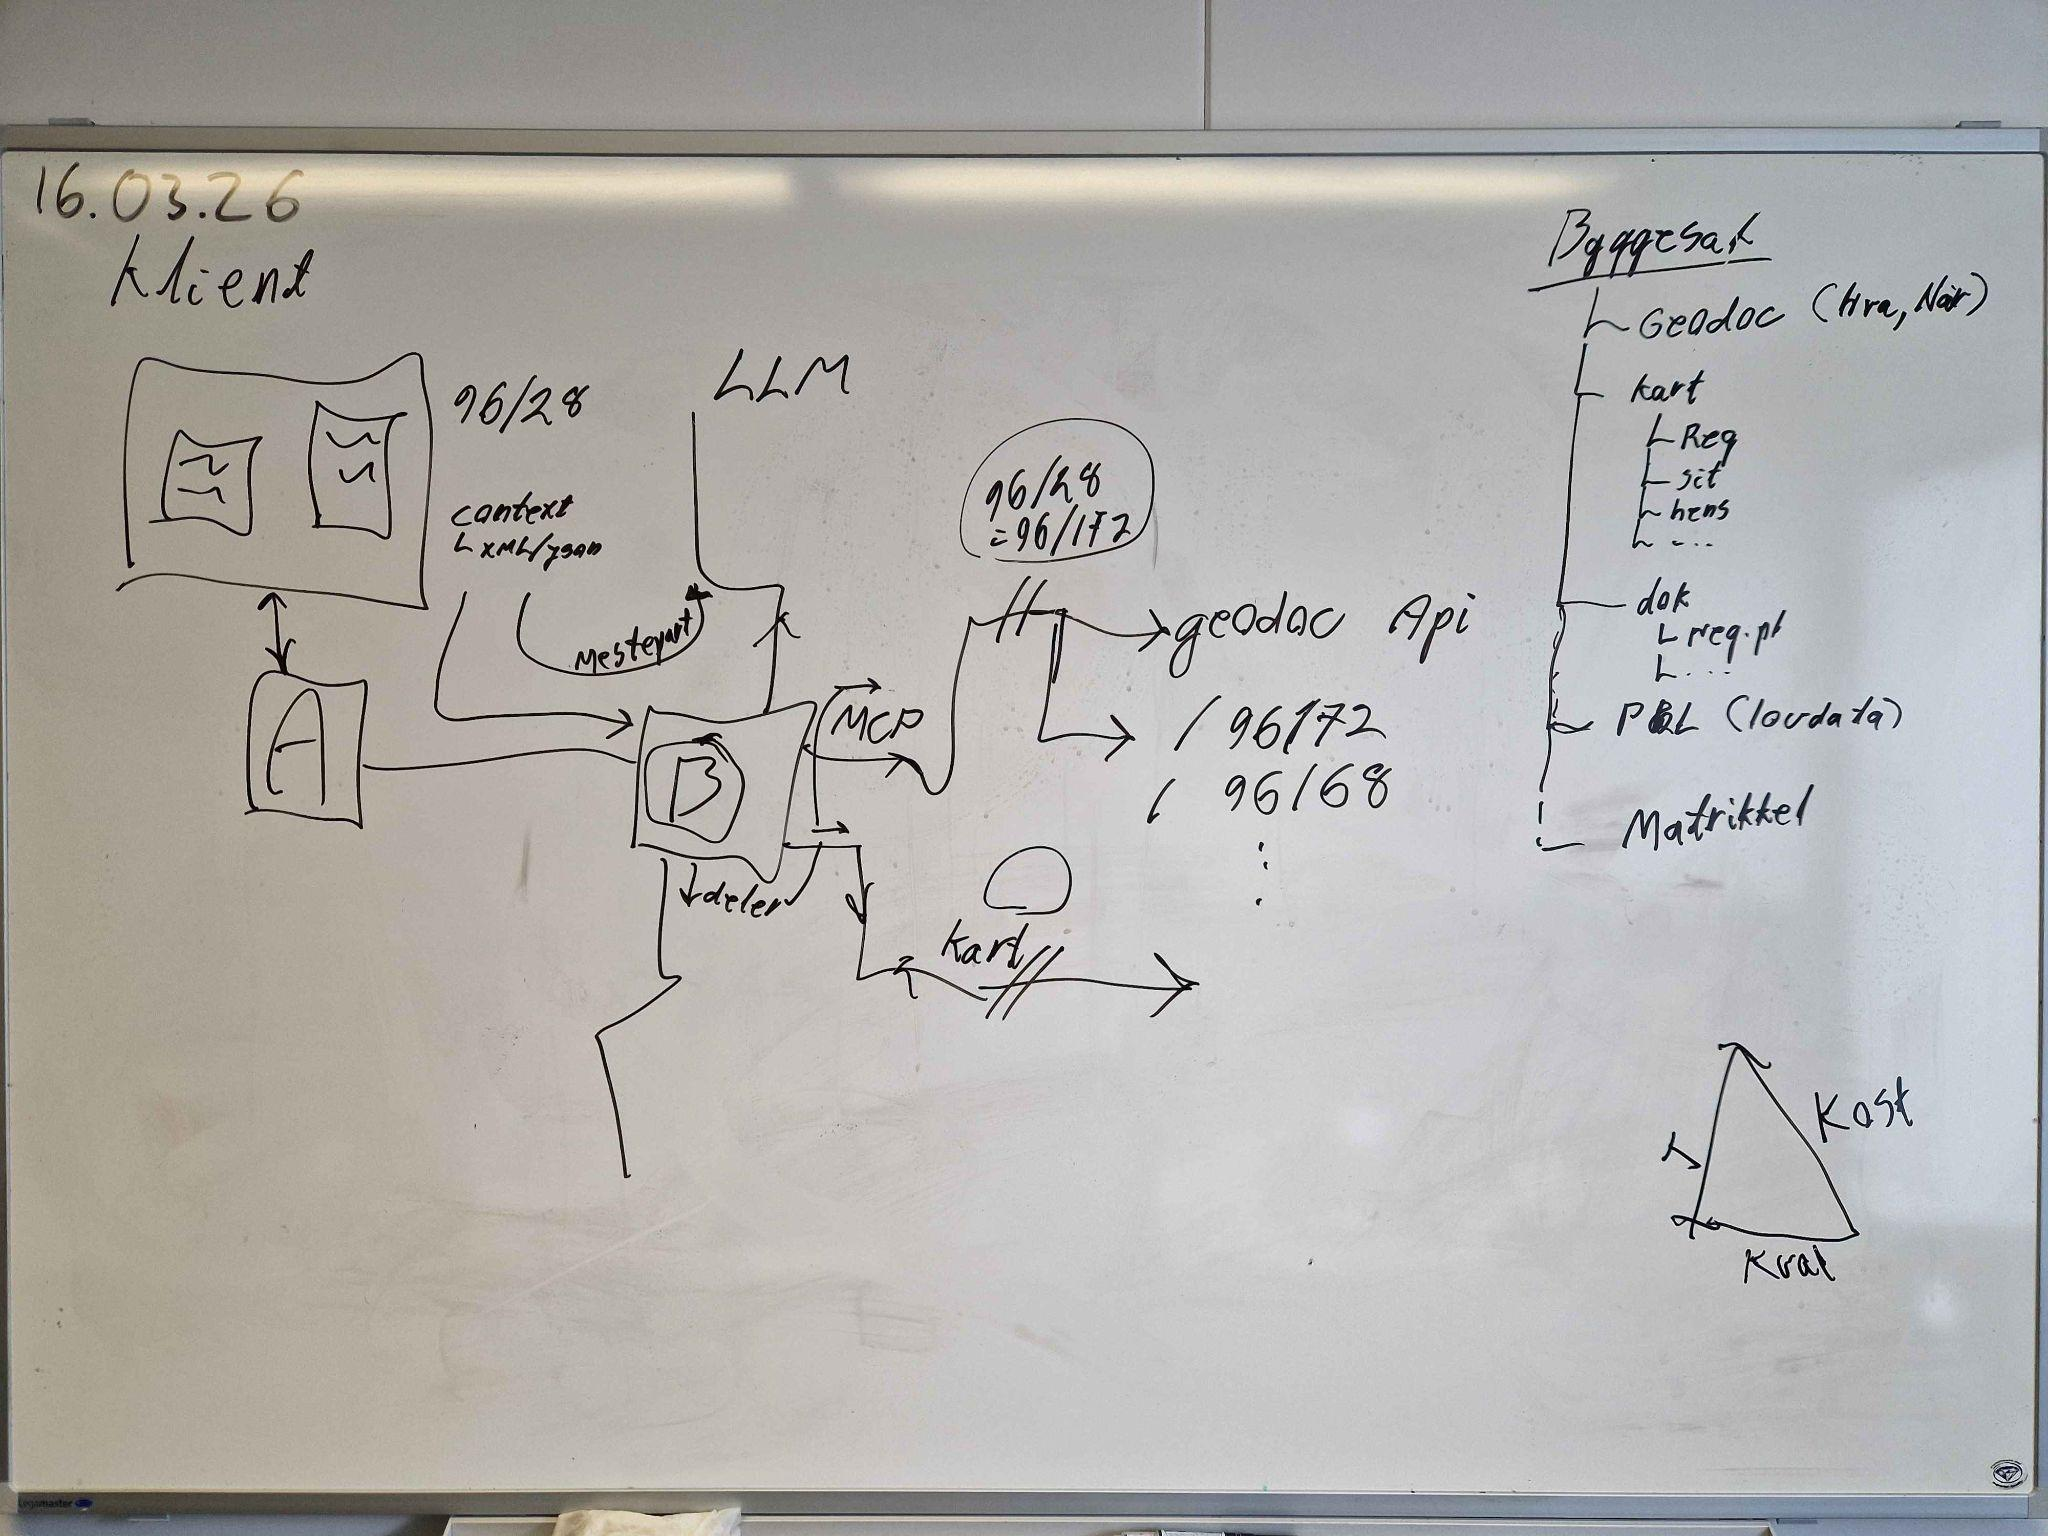 16.03.26
Klient
96/28
context
xML/yson
Mesteparten
A
LLM
B
MCP
deler
96/28
=96/172
geodoc Api
/ 96/172
/ 96/68
Kart
Byggesak
Geodoc (Hva, Når)
kart
Reg
sit
hens
....
dok
reg.pl
....
PBL (lovdata)
Matrikkel
T
Kost
Kval
Legamaster